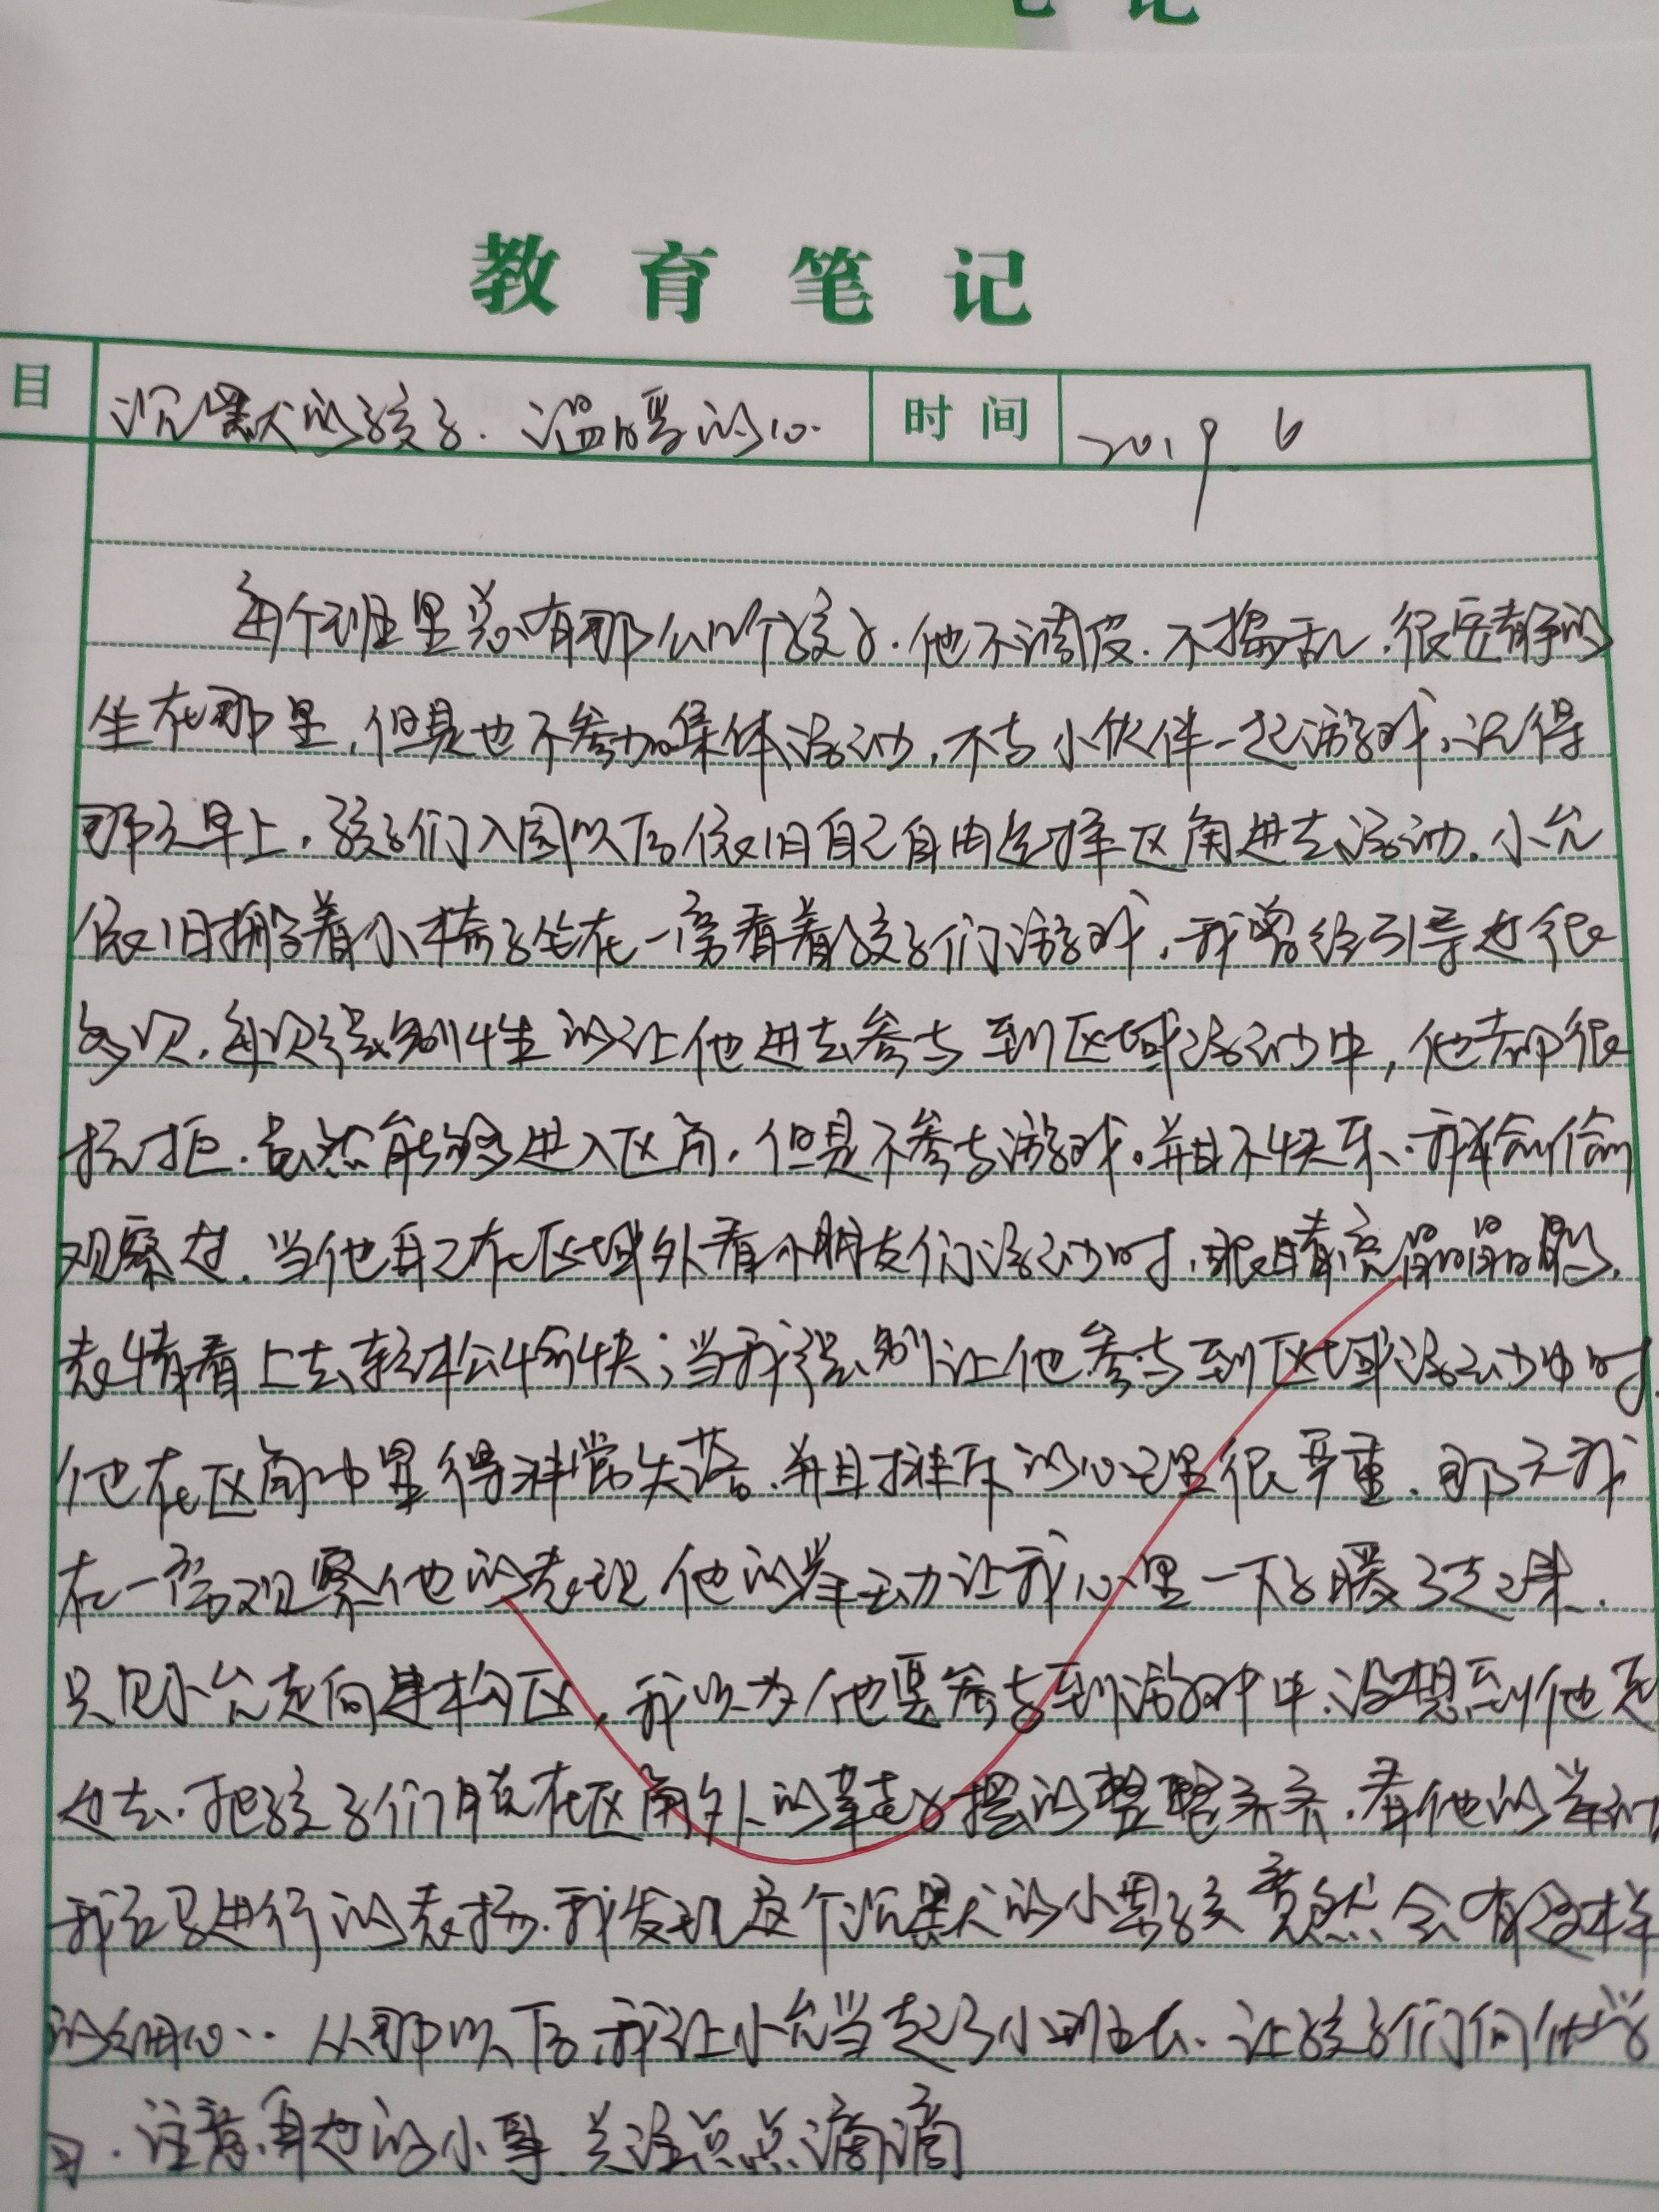 笔记
教育笔记
目 沉默的孩子.温暖的心. 时间 2019.6
每个班里总有那么几个孩子.他不调皮.不捣乱.很安静的
坐在那里,但是也不参加集体活动,不与小伙伴一起游戏,记得
那天早上,孩子们入园以后依旧自己自由选择区角进去活动.小允
依旧搬着小椅子坐在一旁看着孩子们游戏,我曾经引导过很
多次,每次强制性的让他进去参与到区域活动中,他却很
抗拒.虽然能够进入区角,但是不参与游戏。并且不快乐.我偷偷
观察过.当他自己在区域外看小朋友们活动时,眼睛亮晶晶的,
表情看上去轻松愉快;当我强制让他参与到区域活动中时.
他在区角中显得非常失落.并且排斥的心理很严重.那天我
在一旁观察他的表现 他的举动让我心里一下子暖了起来.
只见小允走向建构区,我以为他要参与到游戏中.没想到他走
过去.把孩子们脱在区角外的鞋子摆的整整齐齐.看他的举动
我立马进行的表扬.我发现这个沉默的小男孩竟然会有这样
的细心..从那以后我让小允当起了小班长.让孩子们向他学
习.注意身边的小事.关注点点滴滴